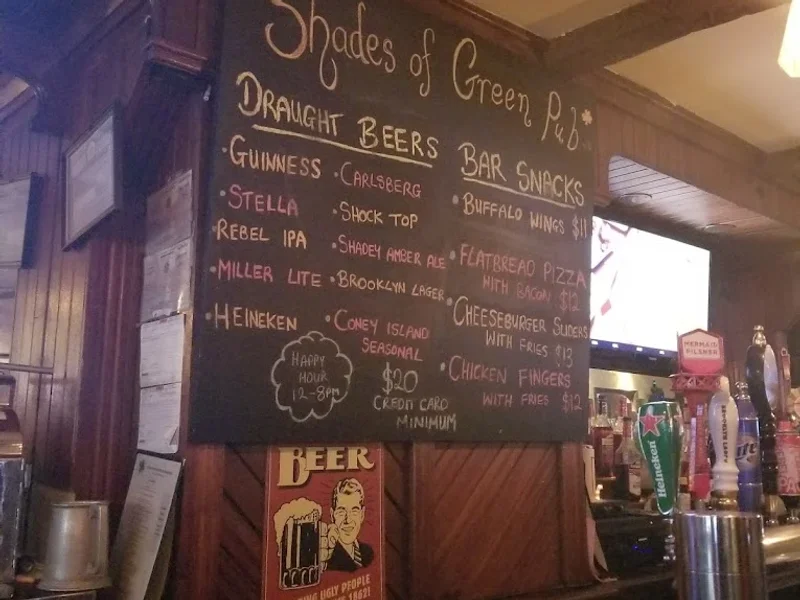 Shades of Green Pub
DRAUGHT BEERS
• GUINNESS
• STELLA
• REBEL IPA
• MILLER LITE
• HEINEKEN
• CARLSBERG
• SHOCK TOP
• SHADEY AMBER ALE
• BROOKLYN LAGER
• CONEY ISLAND
SEASONAL
HAPPY
HOUR
12-8PM
$20
CREDIT CARD
MINIMUM
BAR SNACKS
• BUFFALO WINGS $11
• FLATBREAD PIZZA
WITH BACON $12
• CHEESEBURGER SLIDERS
WITH FRIES $13
• CHICKEN FINGERS
WITH FRIES $12
BEER
UGLY PEOPLE
1862!
MERMAID
PILSNER
Heineken